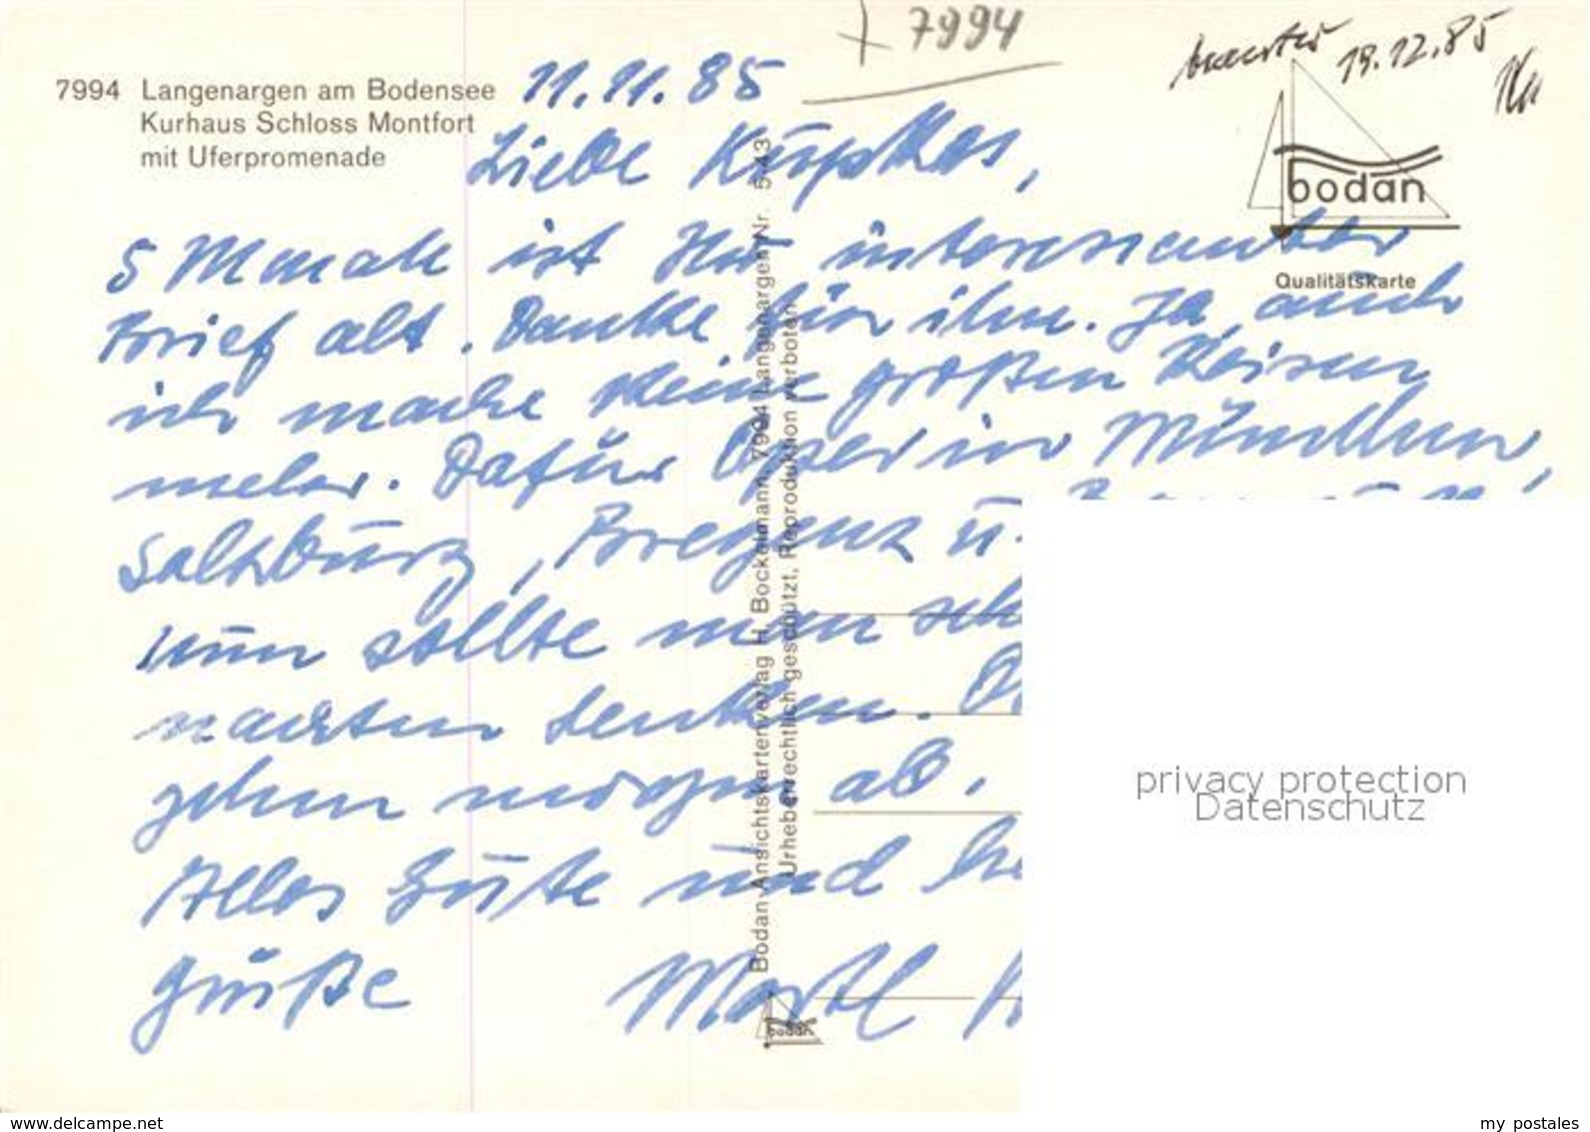 7994
beantw. 19.12.85
7994 Langenargen am Bodensee
Kurhaus Schloss Montfort
mit Uferpromenade
11.11.85
bodan
Qualitätskarte
Liebe Kupkes,
5 Monate ist Ihr interessanter
Brief alt. Danke für ihn. Ja, auch
ich mache keine großen Reisen
mehr. Dafür Oper in München,
Salzburg, Bregenz u.
nun sollte man sch
nachten denken.
gehen morgen ab.
Alles Gute und he
Grüße
Bodan-Ansichtskartenverlag H. Bockelmann, 7994 Langenargen Nr. 5/43
Urheberrechtlich geschützt, Reproduktion verboten
bodan
privacy protection
Datenschutz
www.delcampe.net
my_postales